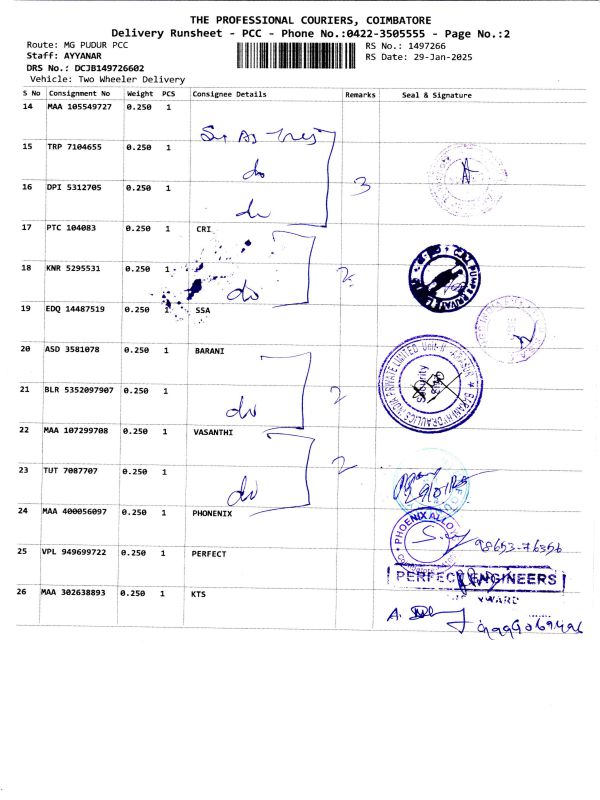 THE PROFESSIONAL COURIERS, COIMBATORE
Delivery Runsheet - PCC - Phone No.:0422-3505555 - Page No.:2
Route: MG PUDUR PCC RS No.: 1497266
Staff: AYYANAR RS Date: 29-Jan-2025
DRS No.: DCJB149726602
Vehicle: Two Wheeler Delivery
S No Consignment No Weight PCS Consignee Details Remarks Seal & Signature
14 MAA 105549727 0.250 1
15 TRP 7104655 0.250 1
do
16 DPI 5312705 0.250 1 3
do
17 PTC 104083 0.250 1 CRI
18 KNR 5295531 0.250 1 2
do
19 EDQ 14487519 0.250 1 SSA
20 ASD 3581078 0.250 1 BARANI
21 BLR 5352097907 0.250 1 2
do
22 MAA 107299708 0.250 1 VASANTHI
23 TUT 7087707 0.250 1 2
do
24 MAA 400056097 0.250 1 PHONENIX
PHOENIX ALLOY
98653-76356
25 VPL 949699722 0.250 1 PERFECT
PERFECT ENGINEERS
26 MAA 302638893 0.250 1 KTS